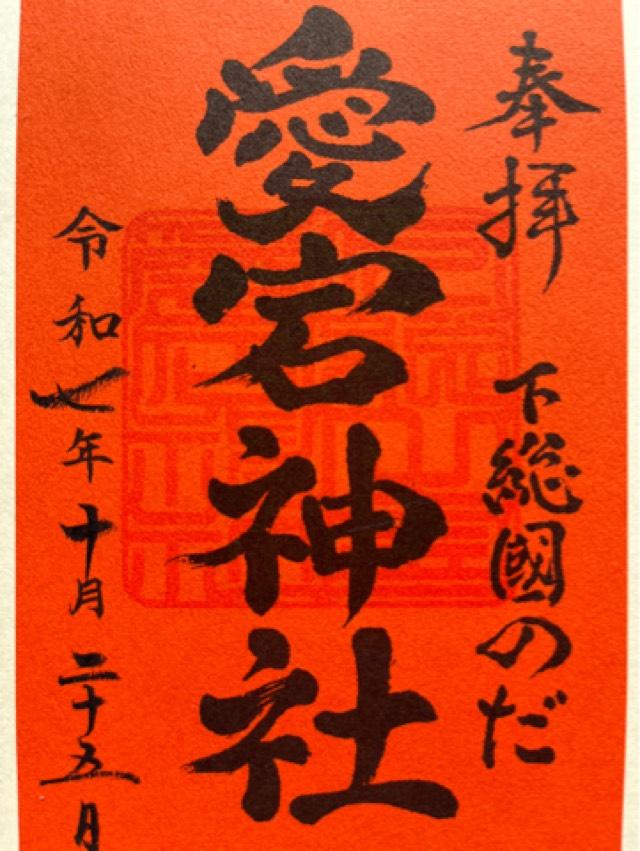 奉拝　下総國のだ
愛宕神社
令和七年十月二十五日